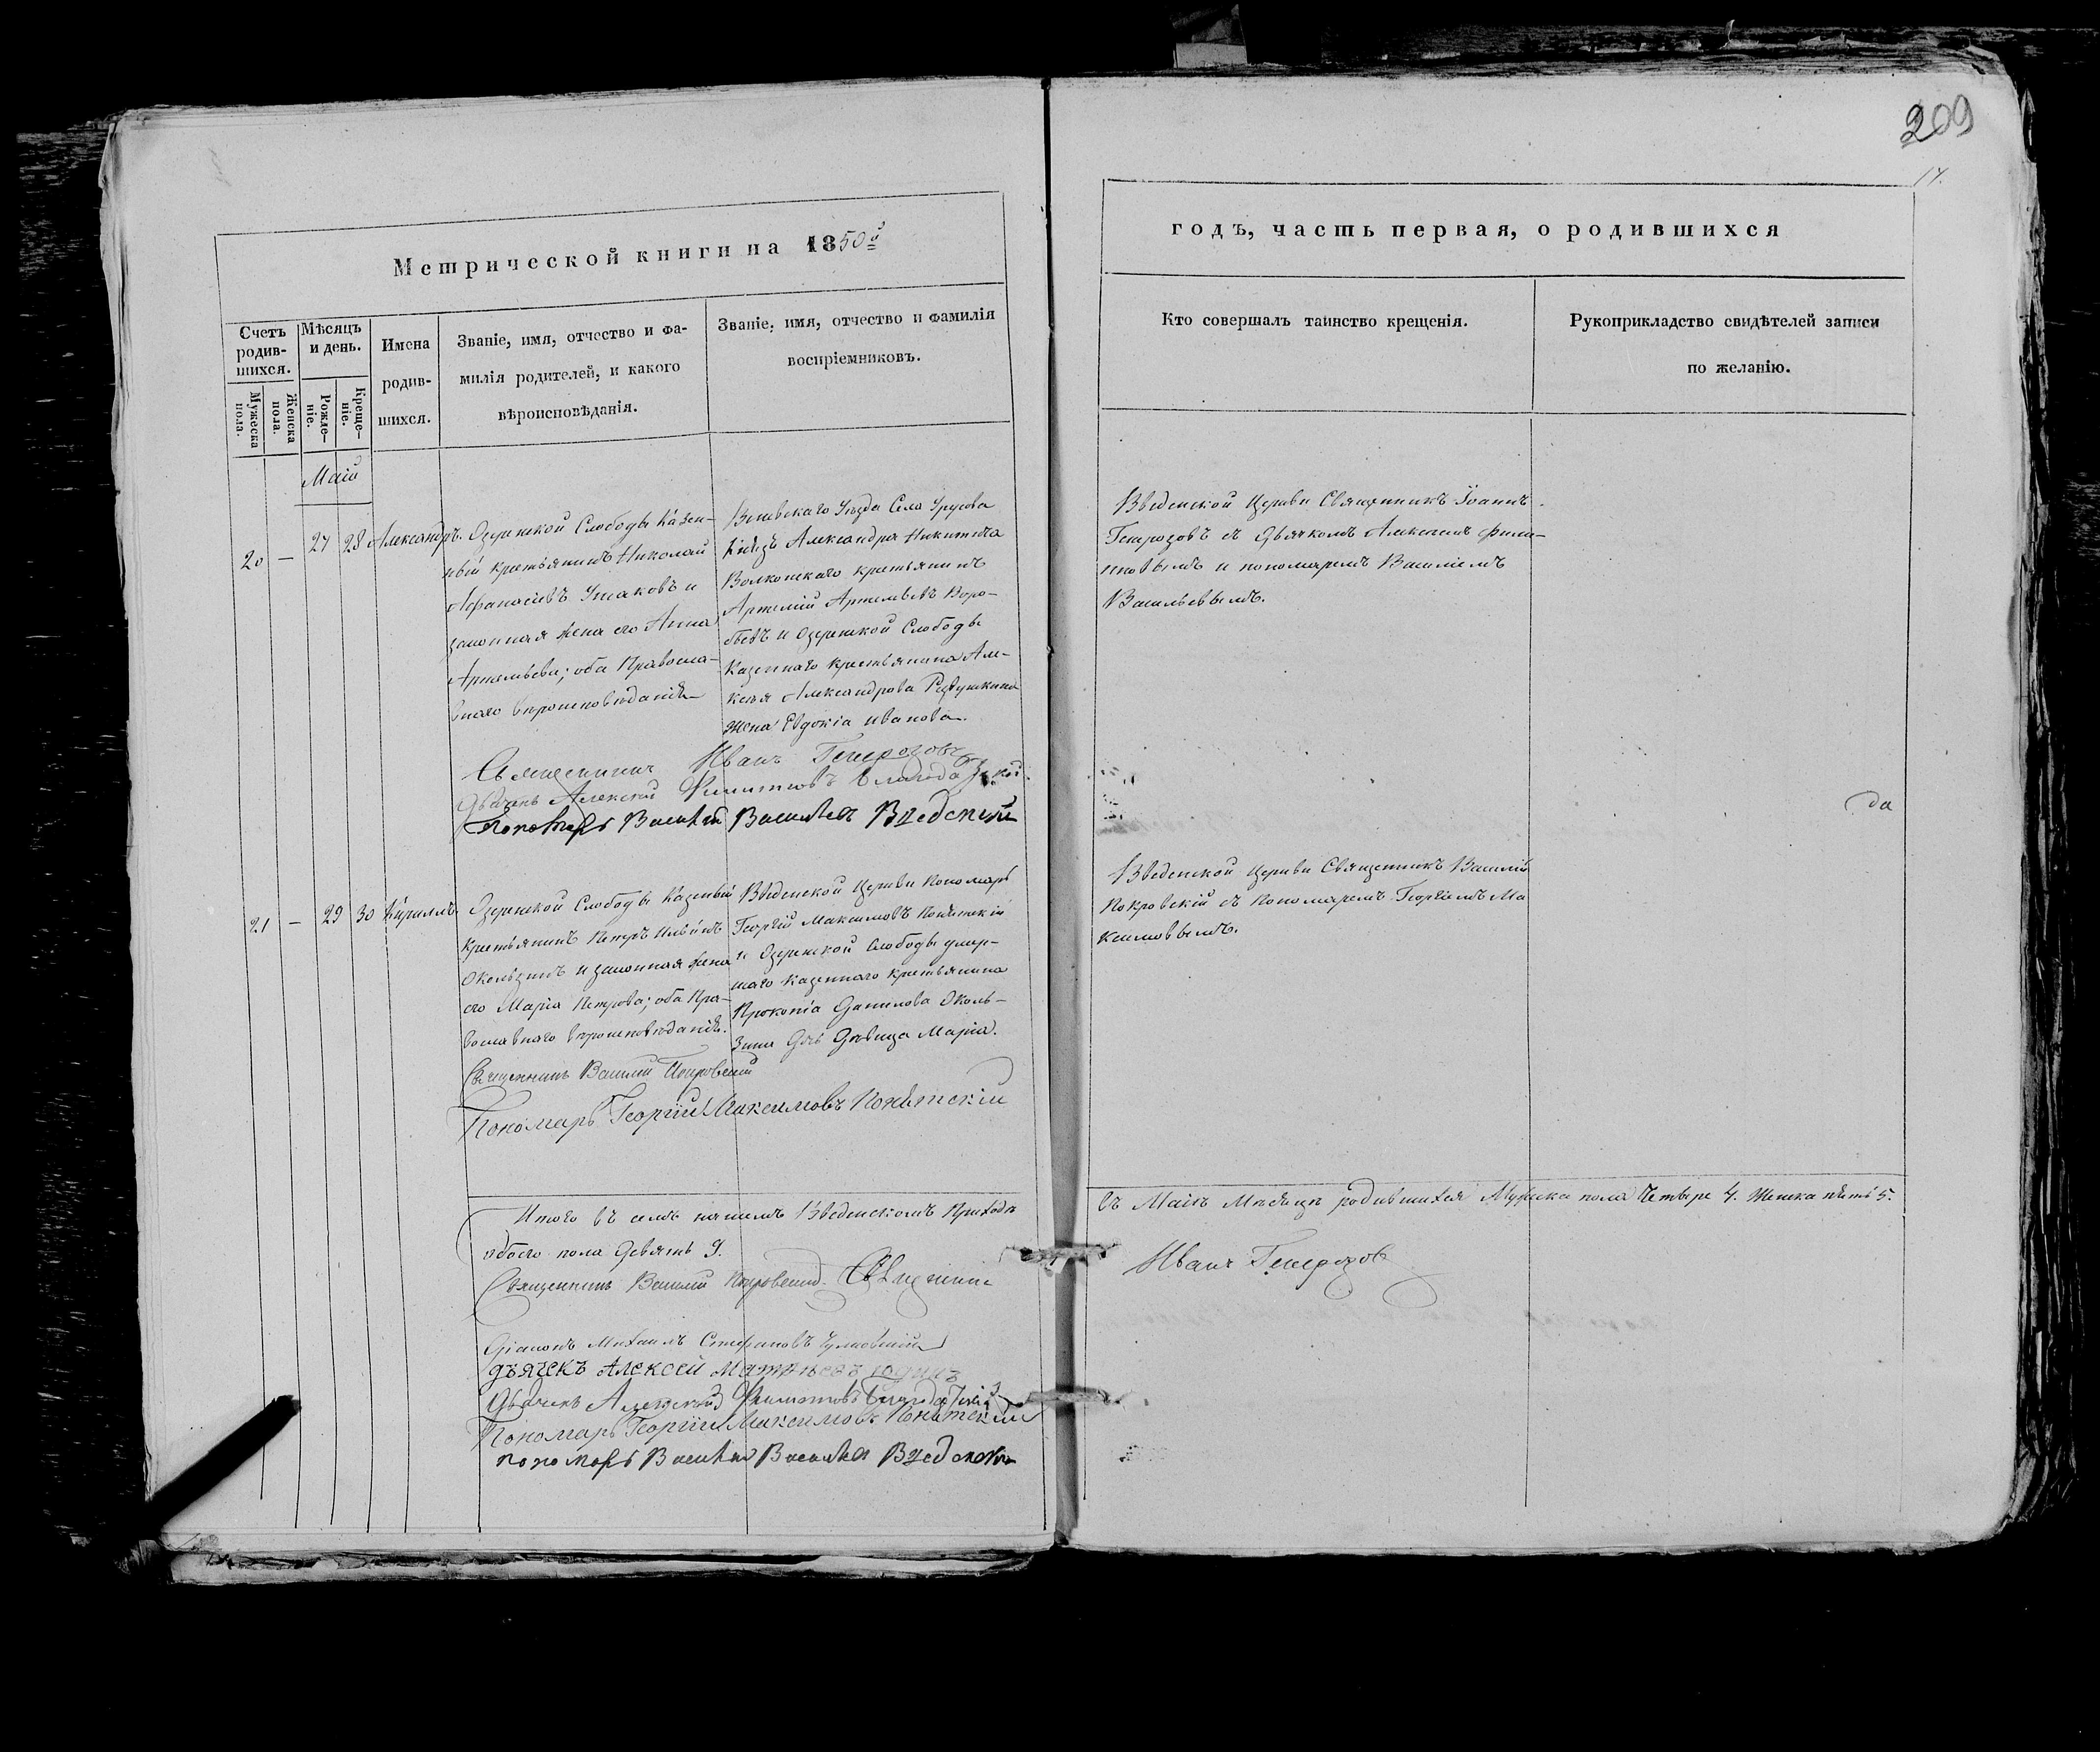 209
17.
Метрической книги на 1850й
годъ, часть первая, о родившихся
Счетъ родив-
шихся.
Мужеска пола.
Женска пола.
Мѣсяцъ и день.
Рожде-
ніе.
Креще-
ніе.
Имена
родив-
шихся.
Званіе, имя, отчество и фа-
милія родителей, и какого
вѣроисповѣданія.
Званіе, имя, отчество и фамилія
воспріемниковъ.
Кто совершалъ таинство крещенія.
Рукоприкладство свидѣтелей записи
по желанію.
Маій
20 — 27 28 Александръ.
Озеренской Слободы Казен-
ный крестьянинъ Николай
Афанасіевъ Ушаковъ и
законная жена его Анна
Артемьева; оба Правосла-
внаго вѣроисповѣданія
Уѣзда Села Урусова
Князя Александра Никитича
Волконскаго крестьянинъ
Артемій Артемьевъ Воро-
бьевъ и Озеренской Слободы
Казеннаго крестьянина Але-
ксѣя Александрова
жена Евдокіа Иванова.
Введенской Церкви Священникъ Іоаннъ
съ Дьячкомъ Алексіемъ Фили-
повымъ и пономаремъ Василіемъ
Васильевымъ.
Священникъ Иванъ
Дьячекъ Алексѣй
Пономарь Василій Васильевъ
да
21 — 29 30 Кириллъ
Озеренской Слободы Казенный
Крестьянинъ Петръ Ильинъ
Окользинъ и законная жена
его Маріа Петрова; оба Пра-
вославнаго вѣроисповѣданія.
Введенской Церкви Пономарь
Георгій Максимовъ Понятскій
и Озеренской Слободы умер-
шаго казеннаго крестьянина
Прокопіа Данилова Околь-
зина Дочь Девица Маріа.
Введенской Церкви Священникъ Василій
Покровскій съ Пономаремъ Георгіемъ Ма
ксимовымъ.
Священникъ Василій Покровскій
Пономарь Георгій Максимовъ Понятскій
Итого въ семъ нашемъ Введенскомъ Приходѣ
въ Маіѣ Мѣсяцѣ родившихся Мужеска пола Четыре 4. Женска пять 5.
обоего пола Девять 9.
Священникъ Василій Покровскій. Священникъ
Иванъ
Діаконъ Михаилъ Стефановъ
дьячекъ Алексей
Дьячекъ Алексѣй
Пономарь Георгій Максимовъ Понятскій
пономарь Василій Васильевъ